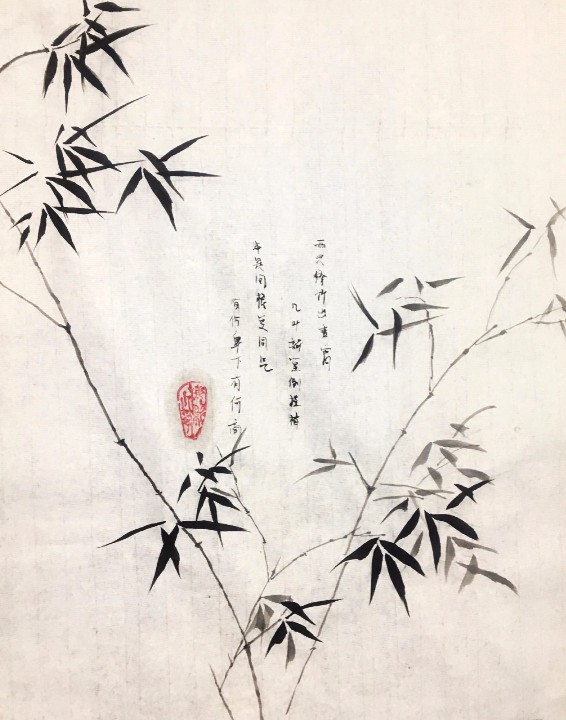 两修竹出重霄
几叶新篁倒挂梢
本是同根复同气
有何卑下有何高